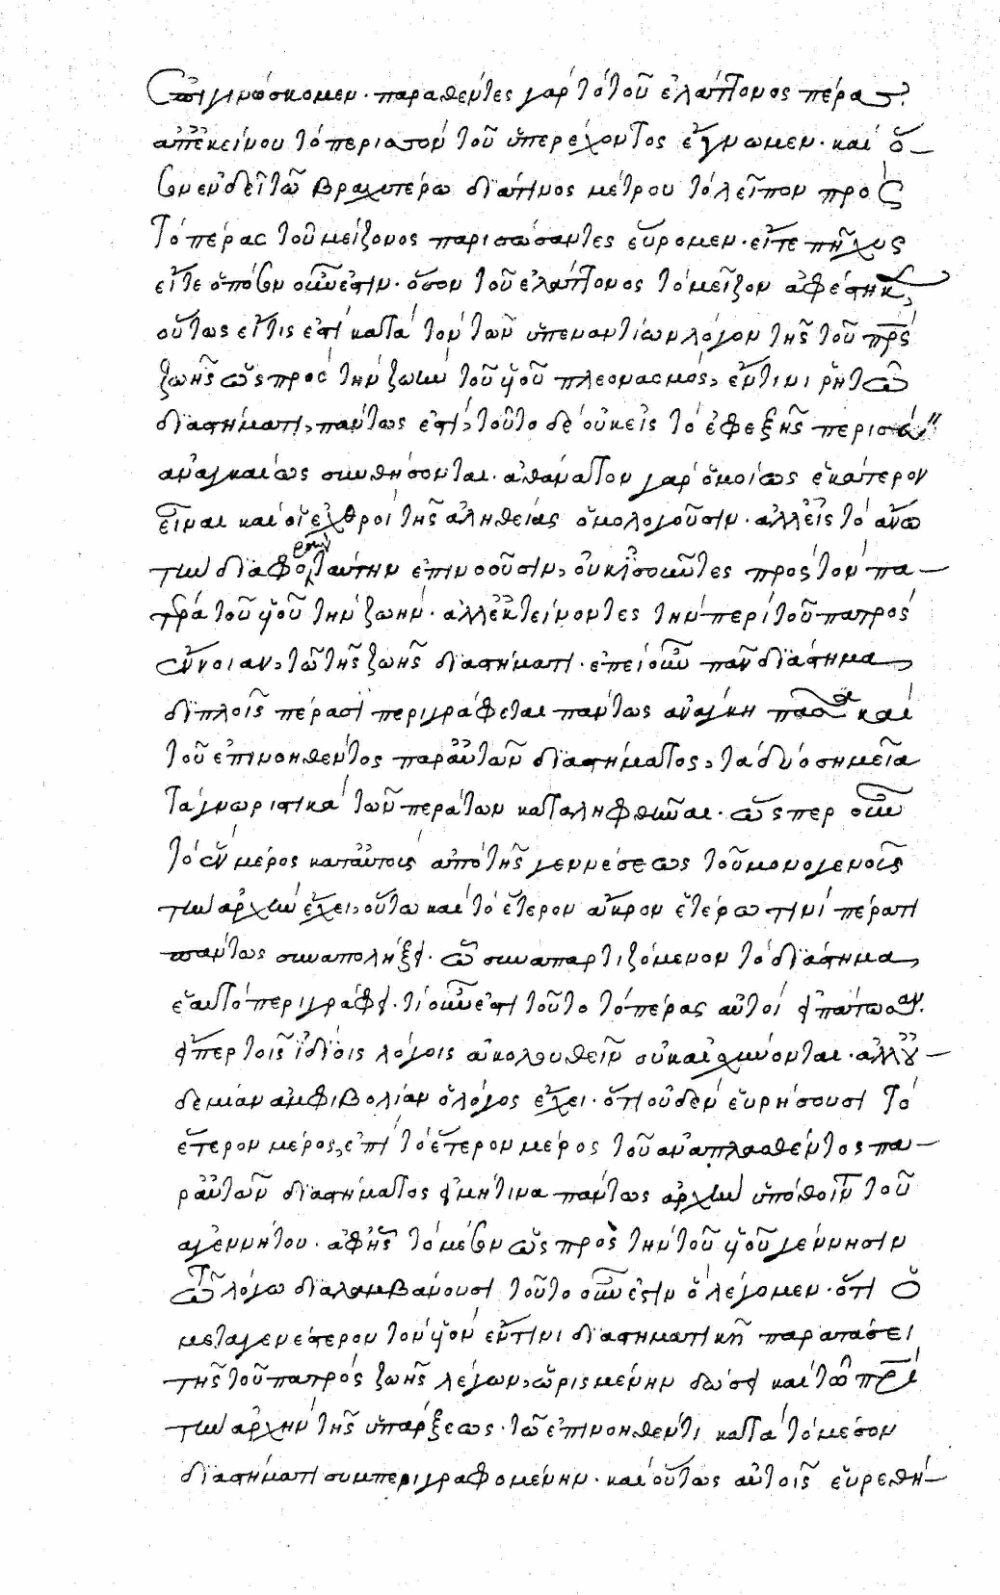 ἐπιγινώσκομεν· παραθέντες γὰρ τὸ τοῦ ἐλάττονος πέρας
ἀπ' ἐκείνου τὸ περισσὸν τοῦ ὑπερέχοντος ἔγνωμεν· καὶ ὅ-
σον ἐνδεῖ τῶ βραχυτέρω διά τινος μέτρου τὸ λεῖπον πρὸς
τὸ πέρας τοῦ μείζονος παρισώσαντες εὕρομεν· εἴτε πῆχυς
εἴτε ὁπόσον οὖν ἐστιν· ὅσον τοῦ ἐλάττονος τὸ μεῖζον ἀφέστηκε,
οὕτως εἴ τις ἐστὶ κατὰ τὸν τῶν ὑπεναντίων λόγον τῆς τοῦ πρς
ζωῆς ὡς πρὸς τὴν ζωὴν τοῦ υἱοῦ πλεονασμός, ἔν τινι ῥητῶ
διαστήματι, πάντως ἐστί, τοῦτο δὲ οὐκ εἰς τὸ ἐφεξῆς περισσὸν
ἀναγκαίως συνθήσονται· ἀθάνατον γὰρ ὁμοίως ἑκάτερον
εἶναι καὶ οἱ ἐχθροὶ τῆς ἀληθείας ὁμολογοῦσιν· ἀλλ' εἰς τὸ ἄνω
τὴν διαφορὰν ταύτην ἐπινοοῦσιν, οὐκ ἰσοῦντες πρὸς τὸν πα-
τρὰ τοῦ υἱοῦ τὴν ζωήν· ἀλλ' ἐκτείνοντες τὴν περὶ τοῦ πατρὸς
ἔννοιαν, τῶ τῆς ζωῆς διαστήματι· ἐπεὶ οὖν πᾶν διάστημα,
διπλοῖς πέρασι περιγράφεται πάντως ἀνάγκη πᾶσα καὶ
τοῦ ἐπινοηθέντος παρ' αὐτῶν διαστήματος, τὰ δύο σημεῖα
τὰ γνωριστικὰ τῶν περάτων καταληφθῆναι· ὥσπερ οὖν
τὸ ἓν μέρος κατ' αὐτοὺς ἀπὸ τῆς γεννέσεως τοῦ μονογενοῦς
τὴν ἀρχὴν ἔχει, οὕτω καὶ τὸ ἕτερον ἄκρον ἑτέρω τινὶ πέρατι
πάντως συναπολήξει· ὧ συναπαρτιζόμενον τὸ διάστημα,
ἑαυτὸ περιγράφει· τί οὖν ἐστι τοῦτο τὸ πέρας αὐτοὶ εἰπάτωσαν.
εἴπερ τοῖς ἰδίοις λόγοις ἀκολουθεῖν οὐκ αἰσχύνονται· ἀλλ' οὐ-
δεμίαν ἀμφιβολίαν ὁ λόγος ἔχει· ὅτι οὐδὲν εὑρήσουσι τὸ
ἕτερον μέρος, ἐπὶ τὸ ἕτερον μέρος τοῦ ἀναπλασθέντος πα-
ρ' αὐτῶν διαστήματος εἰ μή τινα πάντως ἀρχὴν ὑπόθοιντο τοῦ
ἀγεννήτου· ἀφ' ἧς τὸ μέσον ὡς πρὸς τὴν τοῦ υἱοῦ γέννησιν
τῶ λόγω διαλαμβάνουσι τοῦτο οὖν ἐστιν ὃ λέγομεν· ὅτι ὁ
μεταγενέστερον τὸν υἱὸν ἔν τινι διαστηματικῆ παρατάσει
τῆς τοῦ πατρὸς ζωῆς λέγων, ὡρισμένην δώσει καὶ τῶ πρὶ
τὴν ἀρχὴν τῆς ὑπάρξεως· τῶ ἐπινοηθέντι κατὰ τὸ μέσον
διαστήματι συμπεριγραφομένην· καὶ οὕτως αὐτοῖς εὑρεθή-